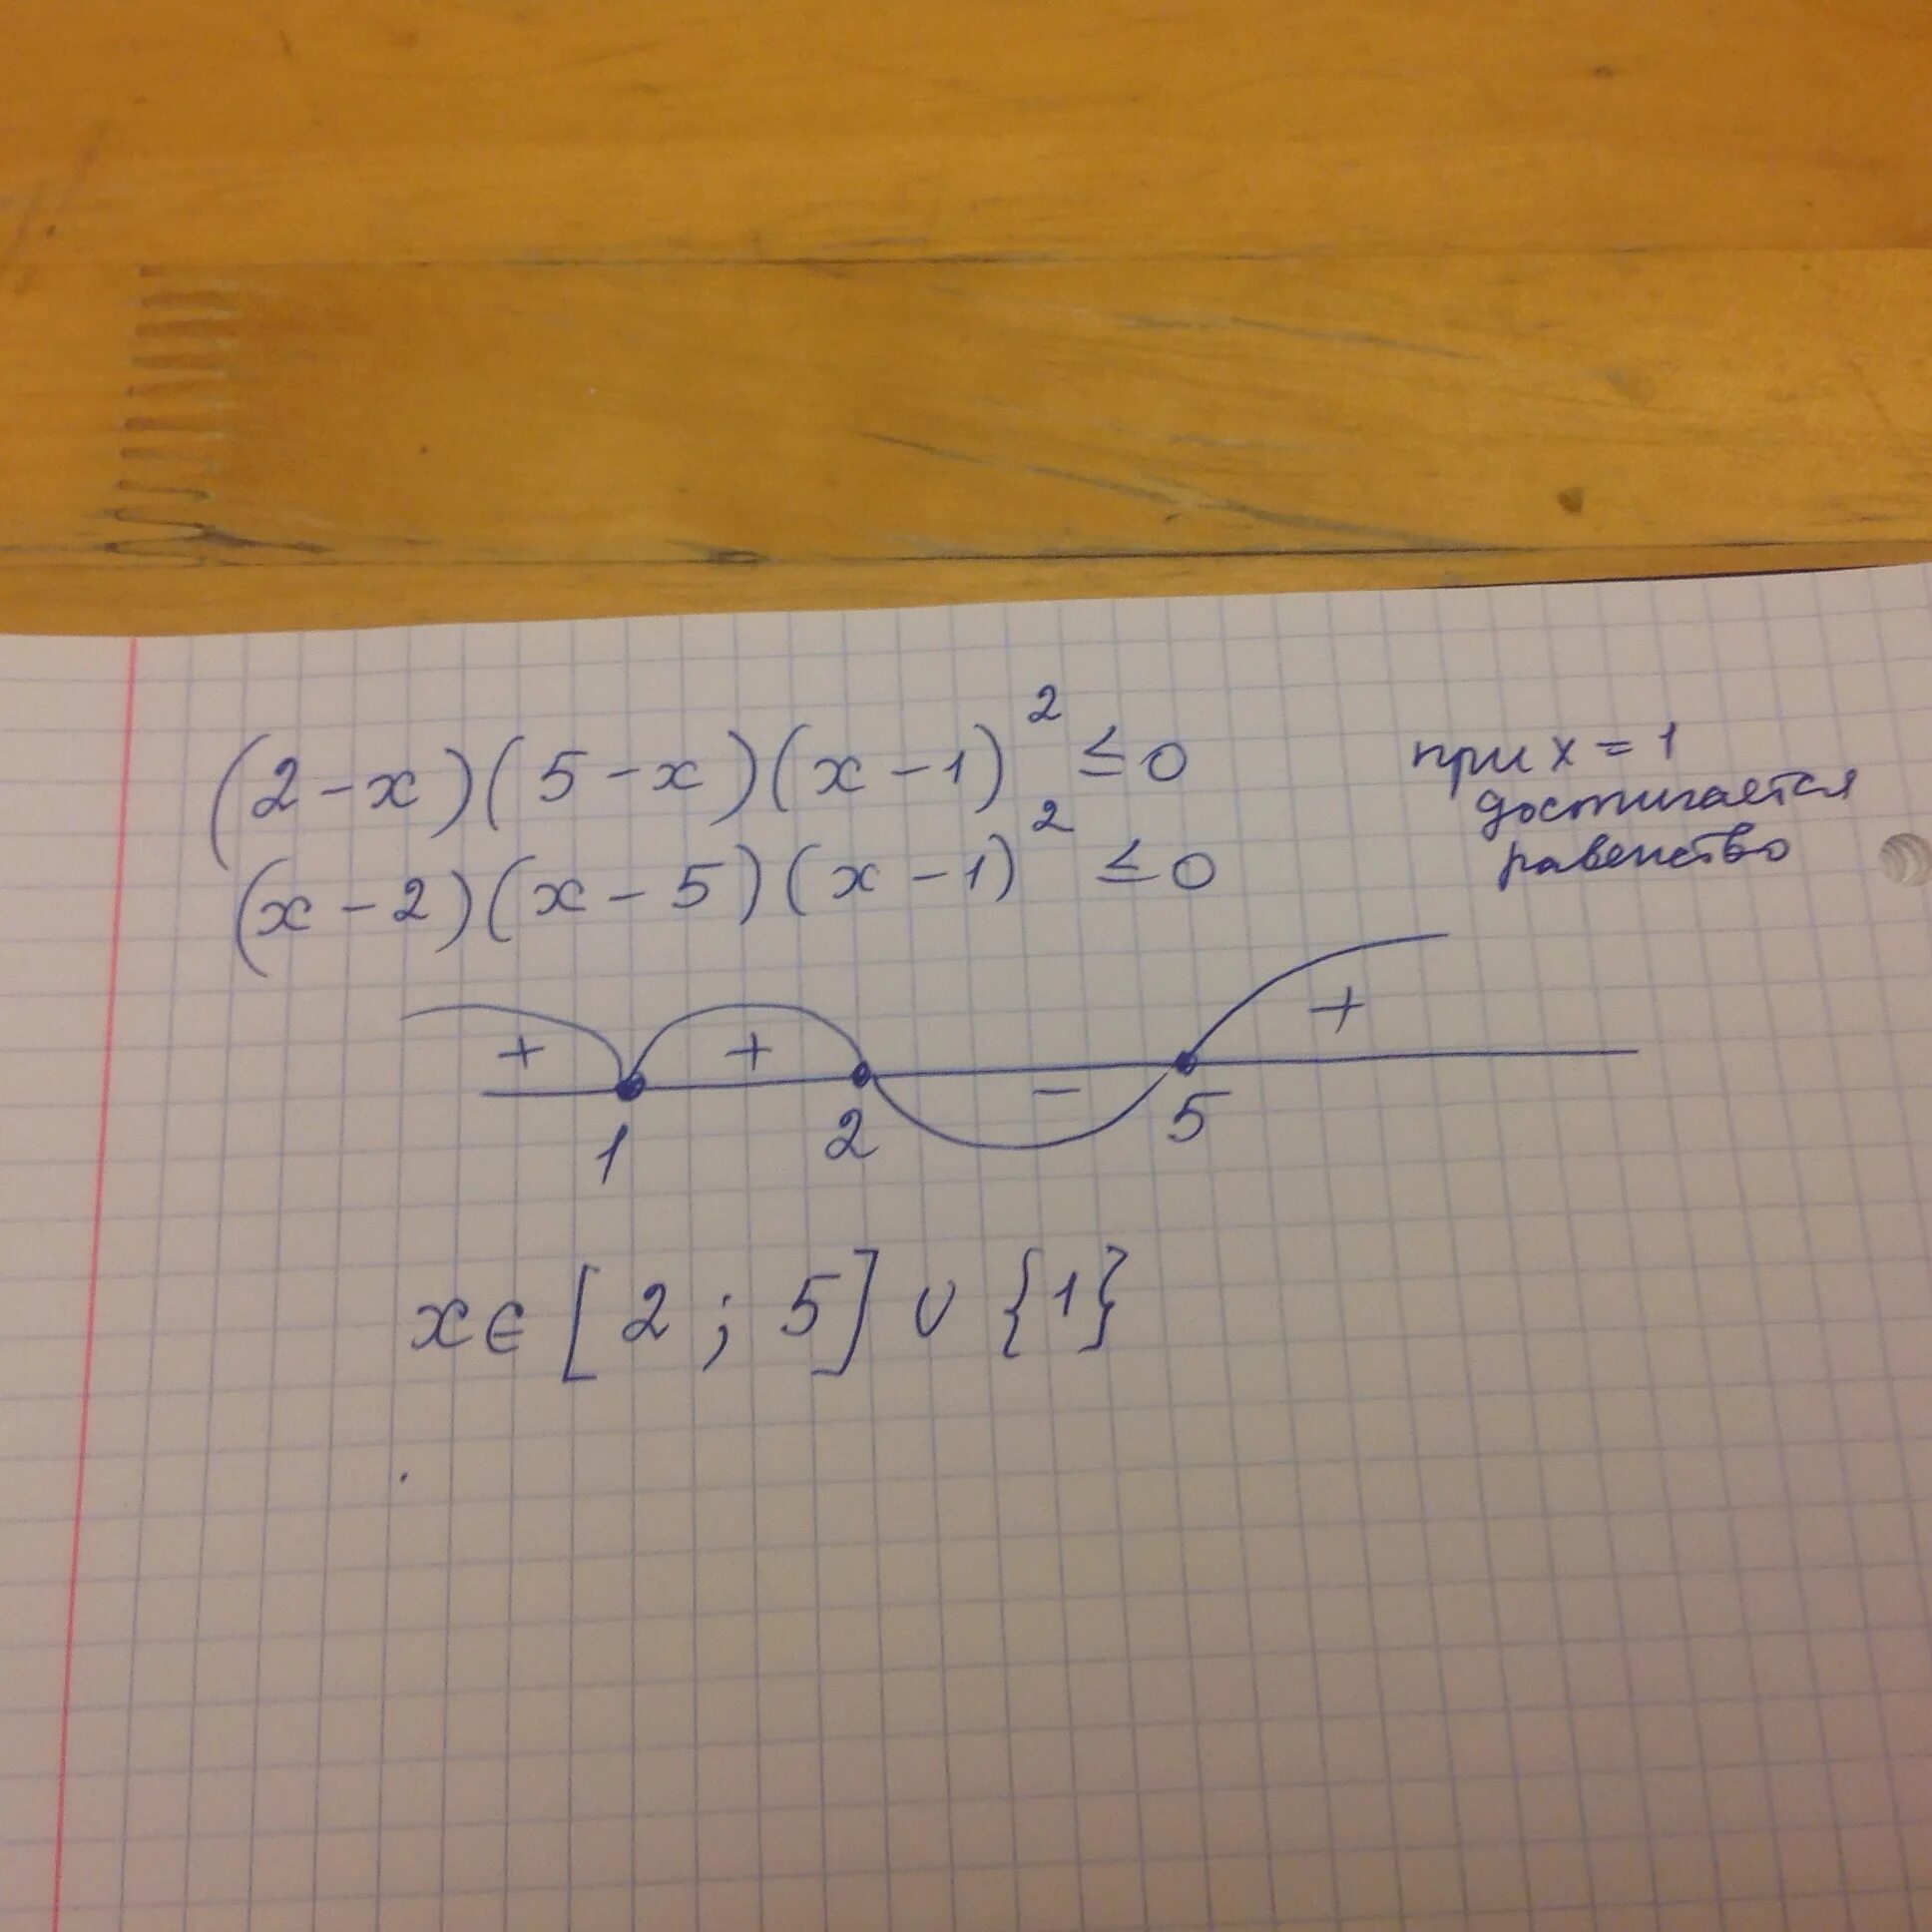 (2-x)(5-x)(x-1)² ≤0
при x = 1
достигается
равенство
(x-2)(x-5)(x-1)² ≤0
+ + - +
1 2 5
x∈[2;5]∪{1}